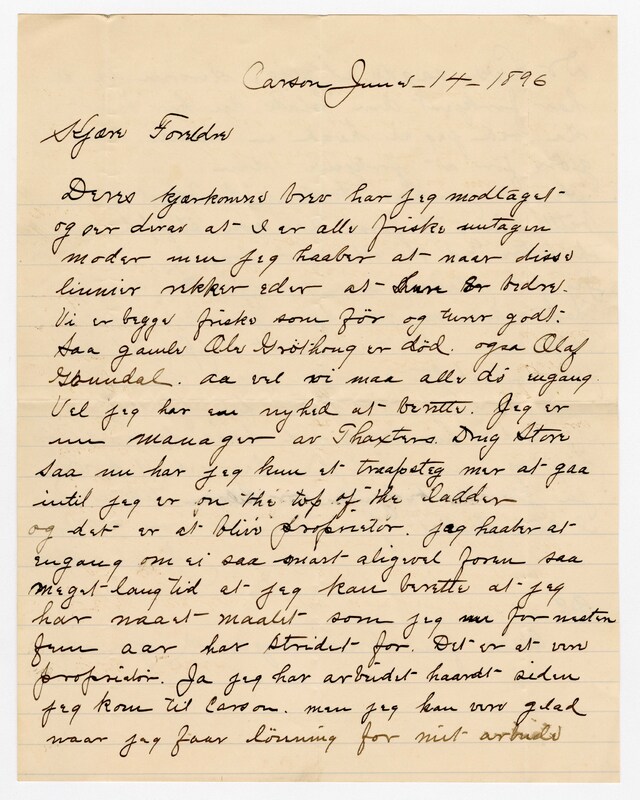 Carson June - 14 - 1896
Kjære Foreldre
Deres kjærkomne brev har jeg modtaget
og ser derav at I er alle friske untagen
moder men jeg haaber at naar disse
linnier rekker eder at Er bedre.
Vi er begge friske som för og turer godt.
Saa gamle Ole er död. ogsa Olaf
aa vel vi maa alle dö engang
Vel jeg har en nyhed at berette. Jeg er
nu manager av Thaxters Drug Store
saa nu har jeg kun et trapsteg mer at gaa
intil jeg er on the top of the ladder
og det er at blive proprietör. jeg haaber at
engang om ei saa snart aligevel foren saa
meget langtid at jeg kan berette at jeg
har naaet maalet som jeg nu for nesten
fem aar har stridet for. Det er at vere
proprietör. Ja jeg har arbeidet haardt siden
jeg kom til Carson. men jeg kan vere glad
naar jeg faar lönning for mit arbeide